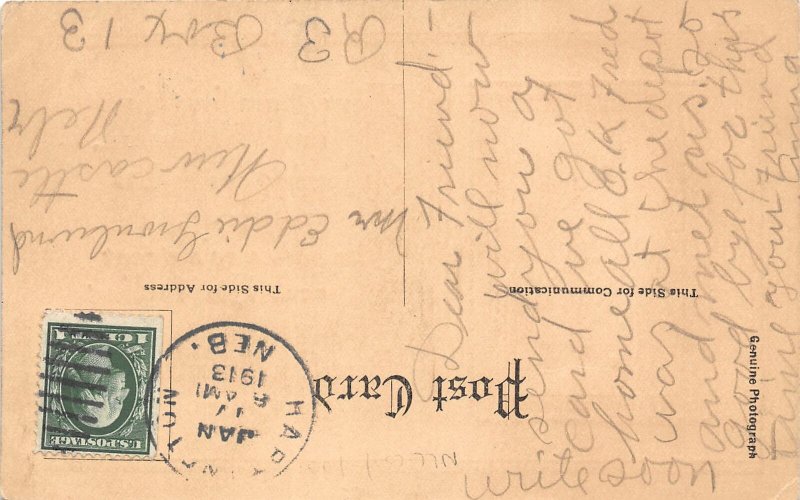 Post Card
This Side for Communication
This Side for Address
Genuine Photograph
U.S. POSTAGE
1 CENT
HARTINGTON
JAN
17
6 AM
1913
NEB.
Mr Eddie Gronlund
Newcastle
Nebr
R3
Box 13
Dear Friend-
will now
send you a
card we got
home all O.K Fred
was at the depot
and met us so
good bye for this
time your Friend
Emma
write soon